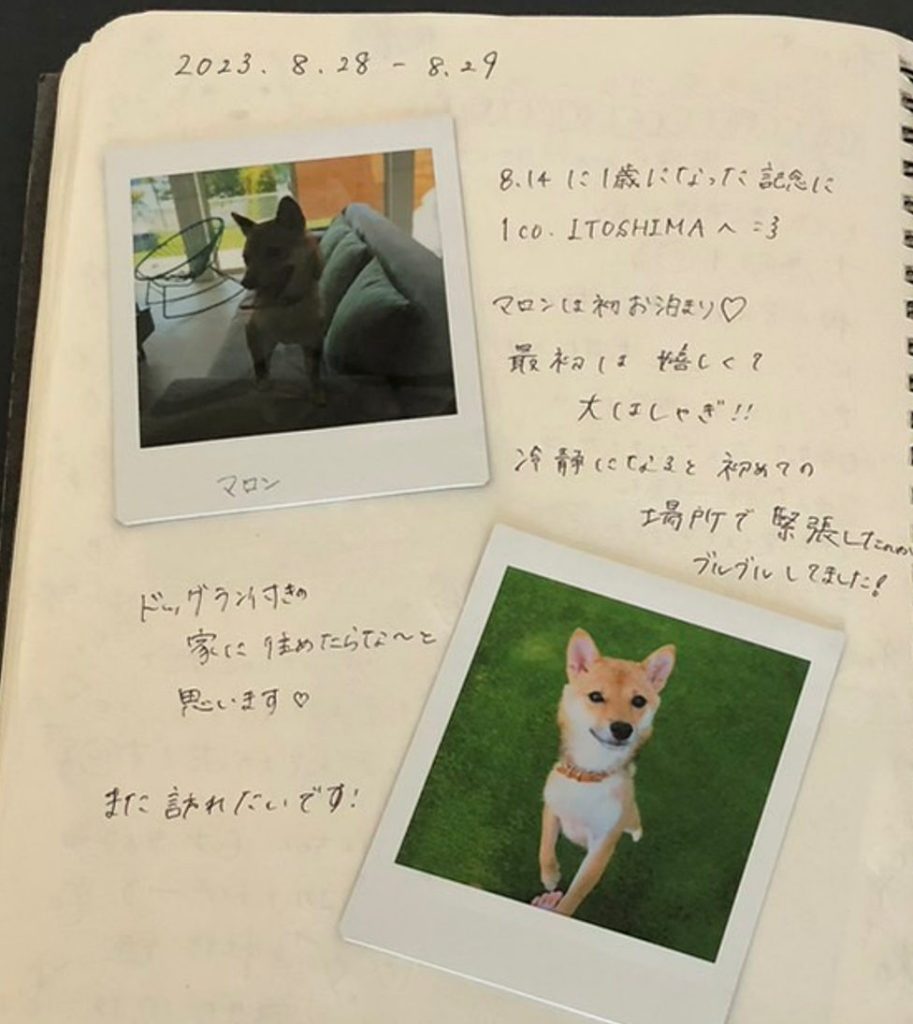 2023. 8.28 - 8.29
8.14 に1歳になった記念に
1co. ITOSHIMA へ =3
マロンは初お泊まり♡
最初は 嬉しくて
大はしゃぎ!!
冷静になると 初めての
場所で 緊張したのか
ブルブル してました!
マロン
ドッグラン付きの
家に 住めたらな〜と
思います♡
また 訪れたいです!